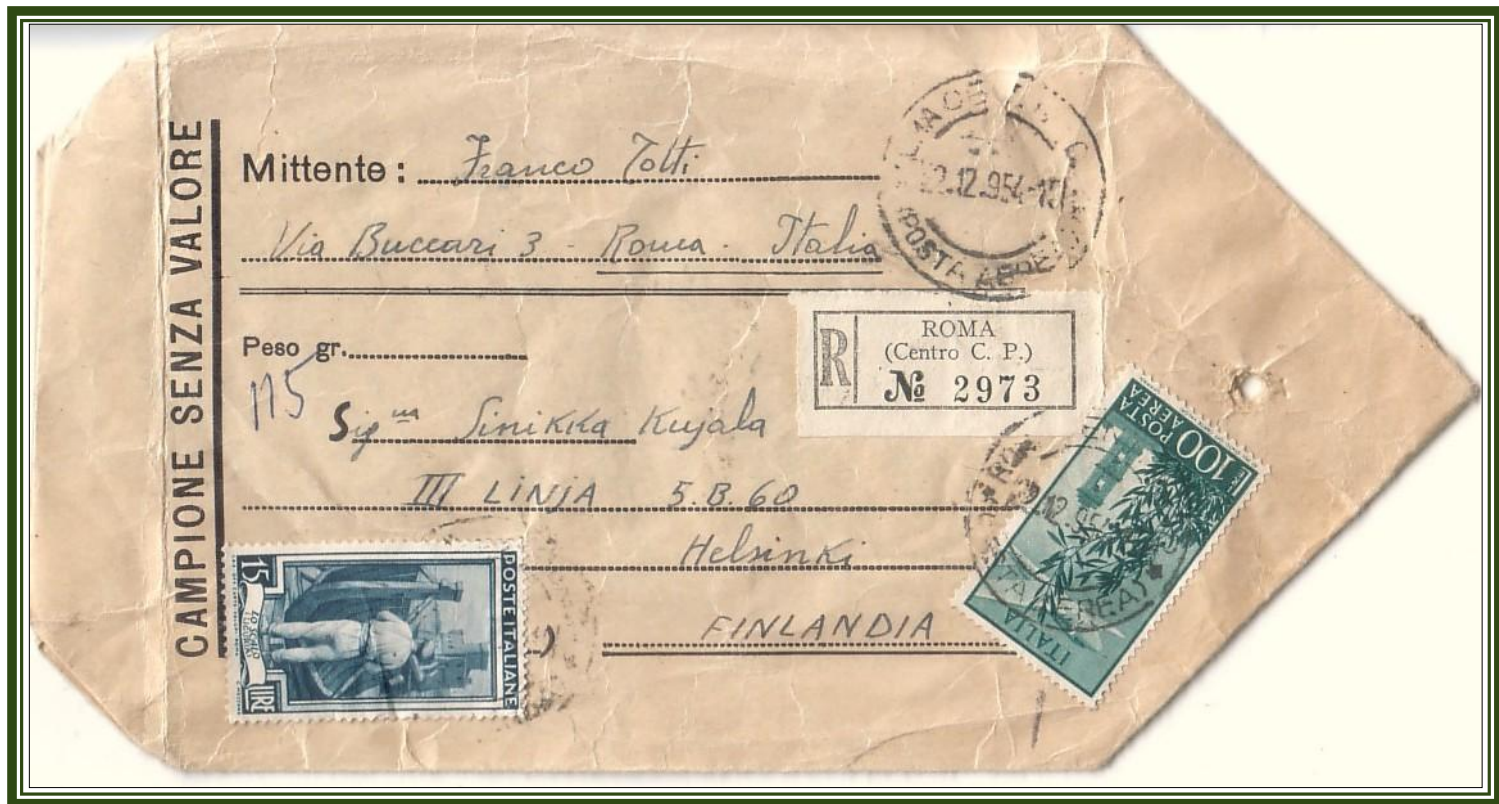 CAMPIONE SENZA VALORE
Mittente : Franco Totti
Via Buccari 3 - Roma - Italia
22.12.954-15
(POSTA AEREA)
Peso gr.
115
R
ROMA
(Centro C. P.)
№ 2973
Sig.na Sinikka Kujala
III LINJA 5.B.60
Helsinki
FINLANDIA
POSTE ITALIANE
15
LIRE
POSTA AEREA
100
ITALIA